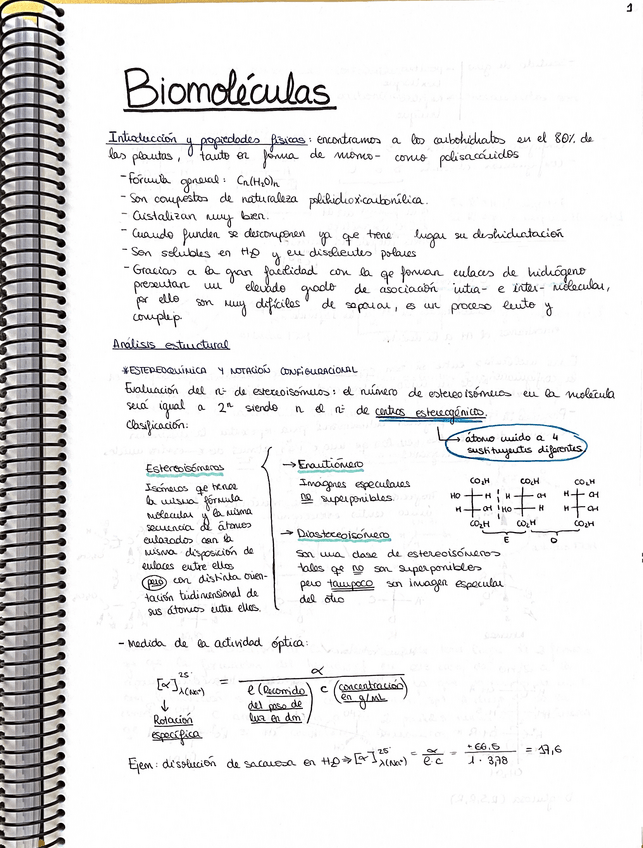 1
Biomoléculas
Introducción y propiedades físicas: encontramos a los carbohidratos en el 80% de
las plantas, tanto en forma de mono- como polisacáridos
- Fórmula general: Cn(H2O)n
- Son compuestos de naturaleza polihidroxicarbonílica.
- Cristalizan muy bien.
- Cuando funden se descomponen ya que tiene lugar su deshidratación
- Son solubles en H2O y en disolventes polares
- Gracias a la gran facilidad con la qe forman enlaces de hidrógeno
presentan un elevado grado de asociación intra- e inter-molecular,
por ello son muy difíciles de separar, es un proceso lento y
complejo
Análisis estructural
*ESTEREOQUÍMICA Y NOTACIÓN CONFIGURACIONAL
Evaluación del nº de estereoisómeros: el número de estereoisómeros en la molécula
será igual a 2ⁿ siendo n el nº de centros estereogénicos.
Clasificación:
→ átomo unido a 4
sustituyentes diferentes
Estereoisómeros
Isómeros qe tiene
la misma fórmula
molecular y la misma
secuencia de átomos
enlazados con la
misma disposición de
enlaces entre ellos
pero con distinta orien-
tación tridimensional de
sus átomos entre ellos.
→ Enantiómero
Imágenes especulares
no superponibles
→ Diastereoisómero
Son una clase de estereoisómeros
tales qe no son superponibles
pero tampoco son imagen especular
del otro
CO2H CO2H CO2H
HO H H OH H OH
H OH HO H H OH
CO2H CO2H CO2H
E D
- Medida de la actividad óptica:
[α]25º λ(Na+) = α / l (Recorrido del paso de luz en dm) c (concentración en g/mL)
↓
Rotación
específica
Ejem: disolución de sacarosa en H2O → [α]25º λ(Na+) = α / l c = +66.5 / 1 · 3,78 = 17,6